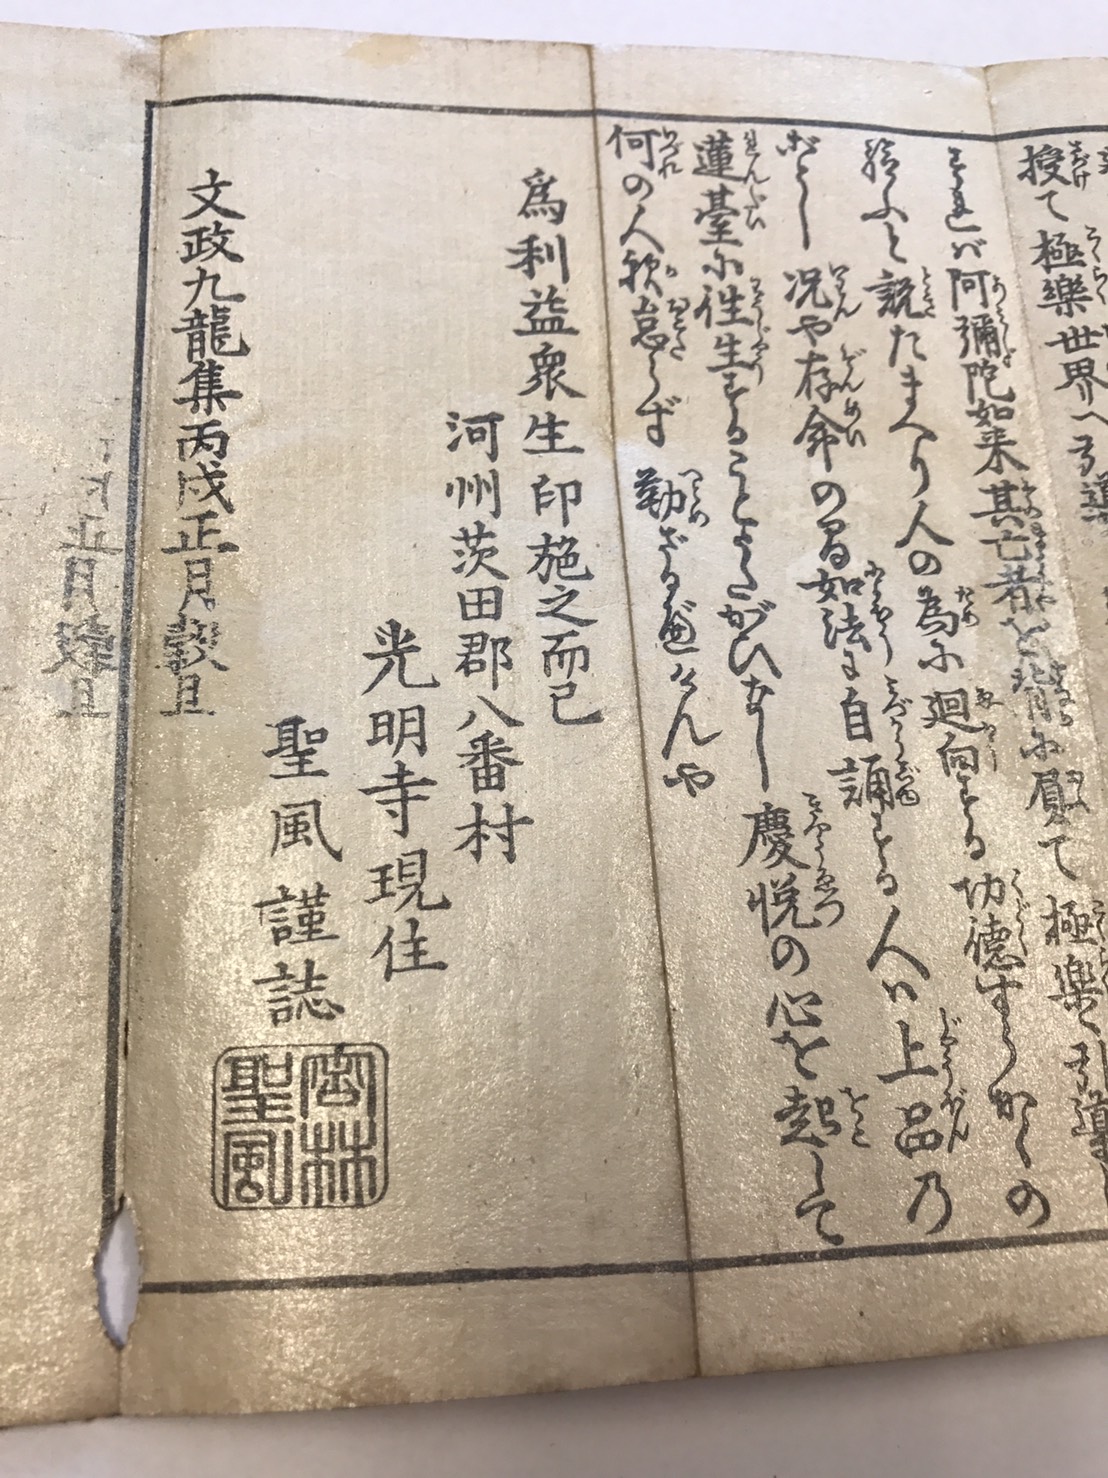 授て極樂世界へ引導
すれバ阿彌陀如来其亡者を背に負て極樂へ引導し
給ふと説たまへり人の為に廻向する功徳すらかくの
ごとし况や存命の間如法に自誦する人ハ上品乃
蓮臺に往生することうたがひなし慶悦の心を起して
何の人歟怠らず勤ざるべけんや
爲利益衆生印施之而已
河州茨田郡八番村
光明寺現住
聖風謹誌
密林
聖風
文政九龍集丙戌正月穀旦
正月穀旦